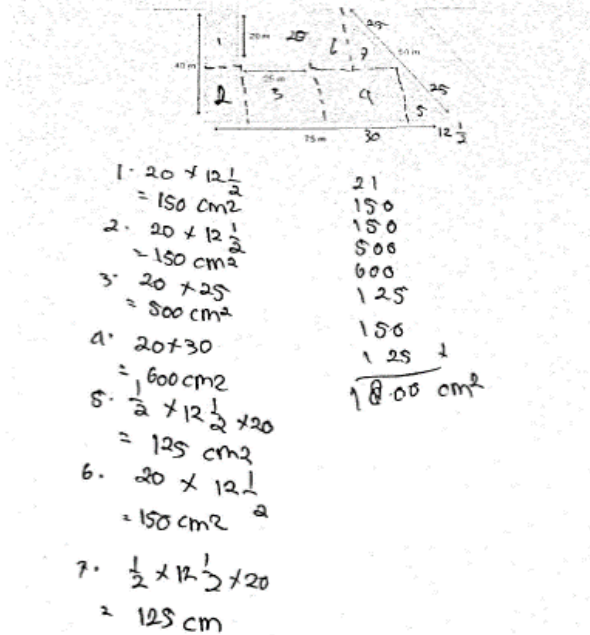 20 m
20
25
50 m
1
6
7
40 m
25 m
25
2
3
4
5
75 m
30
12 1/2
1. 20 × 12 1/2
= 150 cm2
2. 20 × 12 1/2
= 150 cm2
3. 20 × 25
= 500 cm2
4. 20 × 30
= 600 cm2
5. 1/2 × 12 1/2 × 20
= 125 cm2
6. 20 × 12 1/2
= 150 cm2
7. 1/2 × 12 1/2 × 20
= 125 cm
21
150
150
500
600
125
150
125 +
1800 cm2